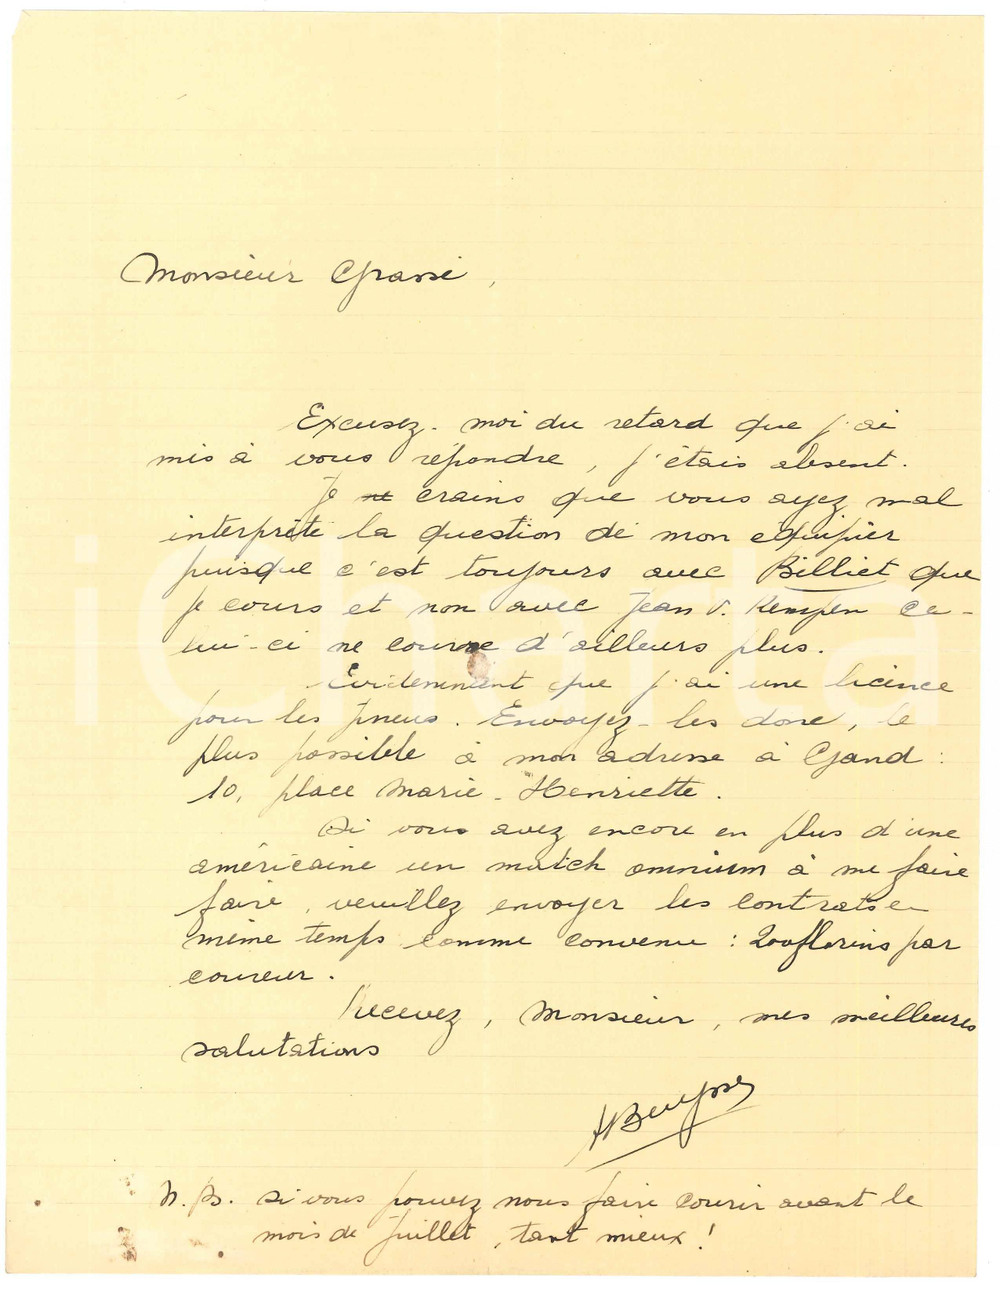 Monsieur Grassi,
Excusez-moi du retard que j'ai
mis à vous répondre, j'étais absent.
Je ne crains que vous ayez mal
interprêté la question de mon équipier
puisque c'est toujours avec Billiet que
je cours et non avec Jean V. Kempen ce-
lui-ci ne courre d'ailleurs plus.
Evidemment que j'ai une licence
pour les pneus. Envoyez-les donc, le
plus possible à mon adresse à Gand :
10, place Marie-Henriette.
Si vous avez encore en plus d'une
américaine un match omnium à me faire
faire, veuillez envoyer les contrats en
même temps comme convenu : 200 florins par
coureur.
Recevez, Monsieur, mes meilleures
salutations
N.B. Si vous pouvez nous faire courir avant le
mois de Juillet, tant mieux !
iCharta